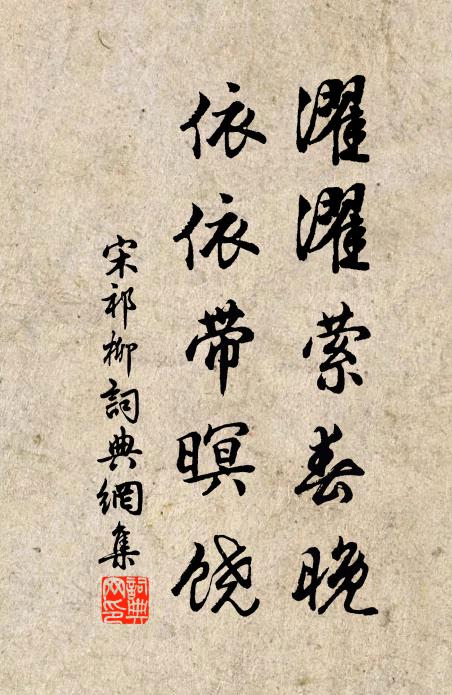 濯濯萦春晚
依依带暝饶
宋祁柳詞典網集
詞典網印